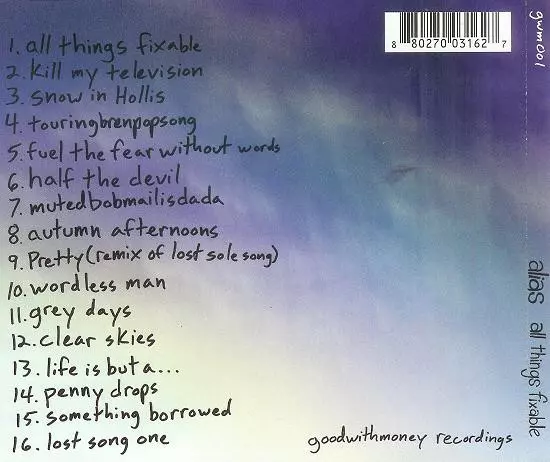 1. all things fixable
2. kill my television
3. snow in Hollis
4. touringbrenpopsong
5. fuel the fear without words
6. half the devil
7. mutedbobmailisdada
8. autumn afternoons
9. Pretty (remix of lost sole song)
10. wordless man
11. grey days
12. clear skies
13. life is but a...
14. penny drops
15. something borrowed
16. lost song one
goodwithmoney recordings
8 80270 03162 7
gwm001
alias all things fixable